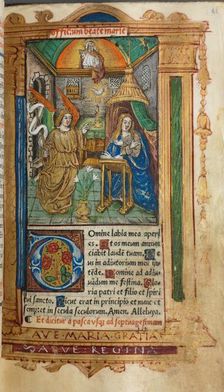 officium beate marie
Domine labia mea aperi
es. Et os meum annun
ciabit laudē tuam.
in adiutorium meu inten
de. Domine ad adiu
uandum me festina.
Gloria patri et filio et spiri
tui sancto. Sicut erat in principio et nunc et
semp: et in secula seculorum. Amen. Alleluya.
Et dicitur a pasca usq; ad septuagesimam
E MARIA GRATIA
SALVE REGINA